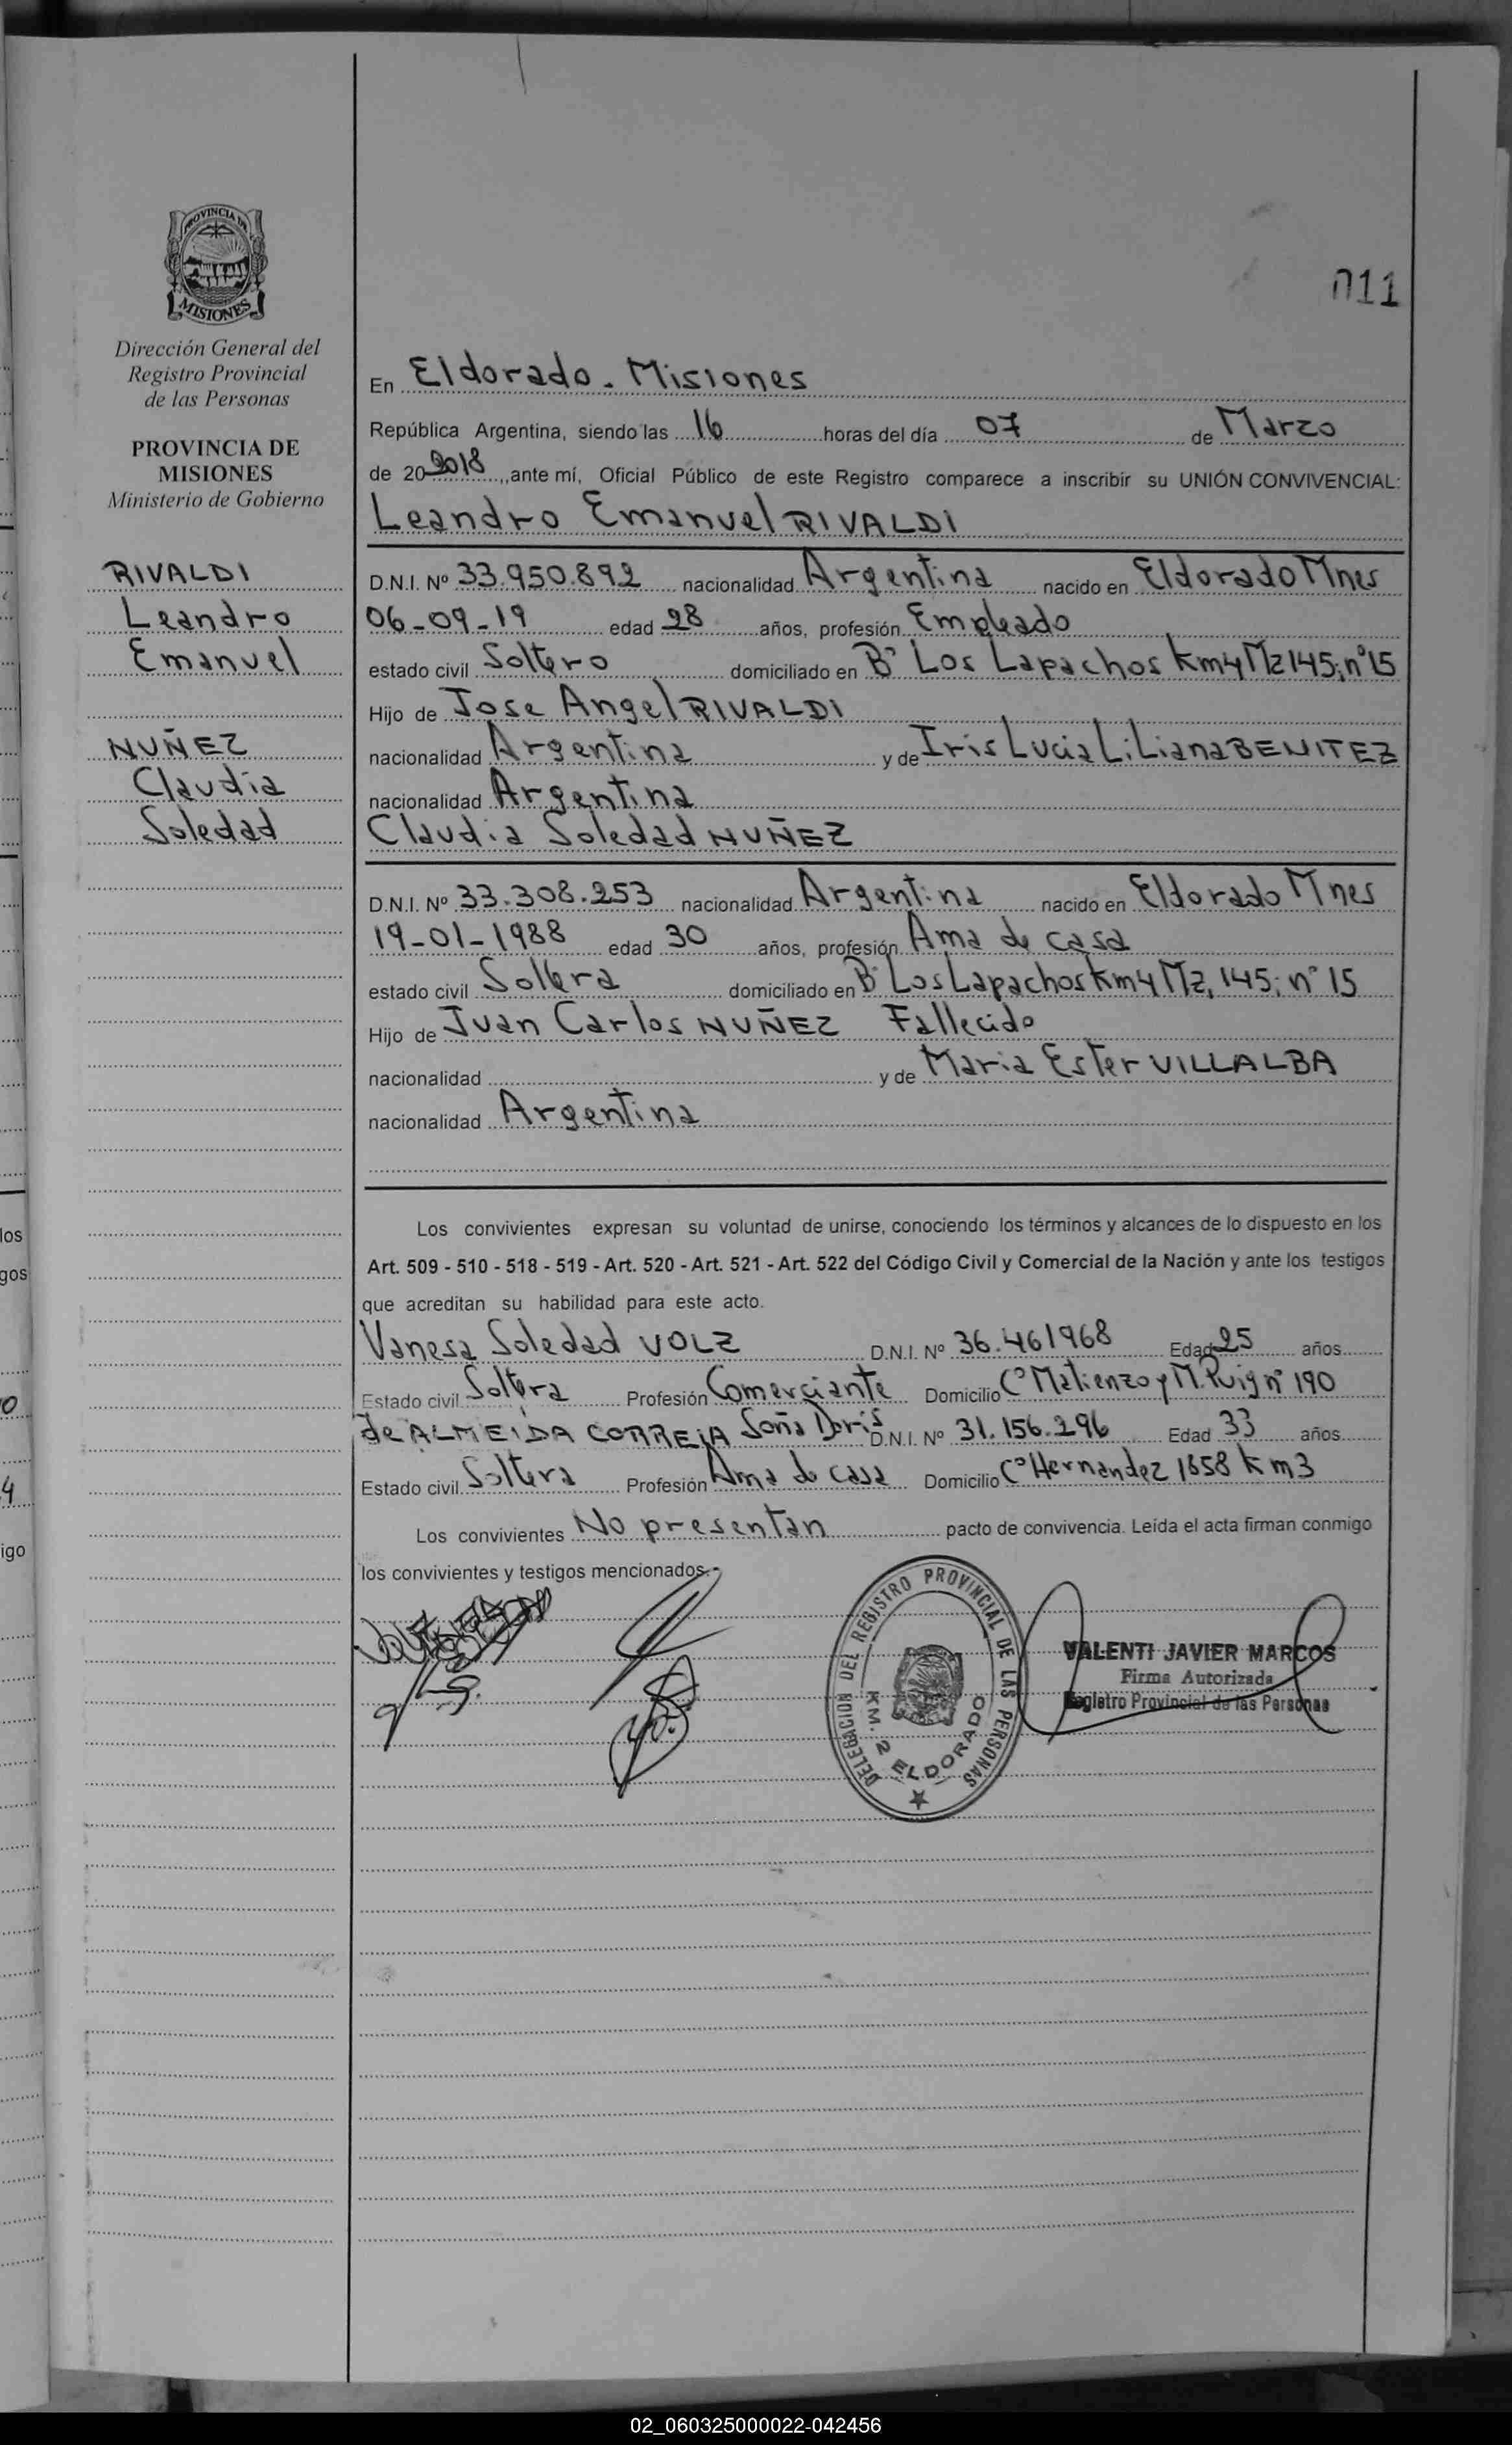 PROVINCIA DE
MISIONES
Dirección General del
Registro Provincial
de las Personas
PROVINCIA DE
MISIONES
Ministerio de Gobierno
RIVALDI
Leandro
Emanuel
NUÑEZ
Claudia
Soledad
011
En Eldorado. Misiones
República Argentina, siendo las 16 horas del día 07 de Marzo
de 20 2018, ante mí, Oficial Público de este Registro comparece a inscribir su UNIÓN CONVIVENCIAL:
Leandro Emanuel RIVALDI
D.N.I. Nº 33.950.892 nacionalidad Argentina nacido en Eldorado Mnes
06-09-19 edad 28 años, profesión Empleado
estado civil Soltero domiciliado en Bº Los Lapachos Km 4 Mz 145; nº 15
Hijo de Jose Angel RIVALDI
nacionalidad Argentina y de Iris Lucia Liliana BENITEZ
nacionalidad Argentina
Claudia Soledad NUÑEZ
D.N.I. Nº 33.308.253 nacionalidad Argentina nacido en Eldorado Mnes
19-01-1988 edad 30 años, profesión Ama de casa
estado civil Soltera domiciliado en Bº Los Lapachos Km 4 Mz, 145; nº 15
Hijo de Juan Carlos NUÑEZ Fallecido
nacionalidad y de Maria Ester VILLALBA
nacionalidad Argentina
Los convivientes expresan su voluntad de unirse, conociendo los términos y alcances de lo dispuesto en los
Art. 509 - 510 - 518 - 519 - Art. 520 - Art. 521 - Art. 522 del Código Civil y Comercial de la Nación y ante los testigos
que acreditan su habilidad para este acto.
Vanesa Soledad VOLZ D.N.I. Nº 36.461968 Edad 25 años
Estado civil Soltera Profesión Comerciante Domicilio Cº Matienzo y M. Puig nº 190
de ALMEIDA CORREIA Soña Doris D.N.I. Nº 31.156.296 Edad 33 años
Estado civil Soltera Profesión Ama de casa Domicilio Cº Hernandez 1858 Km 3
Los convivientes No presentan pacto de convivencia. Leída el acta firman conmigo
los convivientes y testigos mencionados.-
DELEGACION DEL REGISTRO PROVINCIAL DE LAS PERSONAS
KM. 2 ELDORADO
VALENTI JAVIER MARCOS
Firma Autorizada
Registro Provincial de las Personas
los
gos
igo
02_060325000022-042456